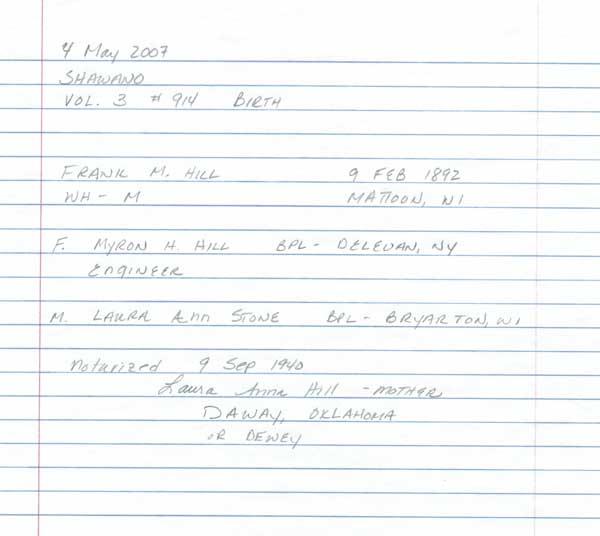 4 May 2007
SHAWANO
VOL. 3 # 914 BIRTH
FRANK M. HILL 9 FEB 1892
WH - M MATTOON, WI
F. MYRON H. HILL BPL - DELEVAN, NY
ENGINEER
M. LAURA Ann STONE BPL - BRYARTON, WI
Notarized 9 Sep 1940
Laura Anna Hill - MOTHER
DAWAY, OKLAHOMA
OR DEWEY